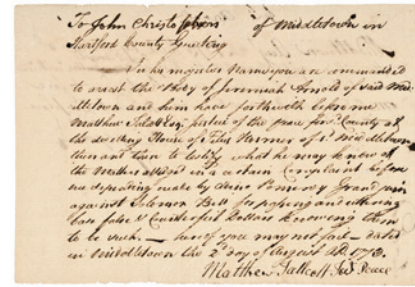 To John Christophers of Middletown in
Hartford County Greeting
In his majesties Name you are commanded
to arrest the Body of Jeremiah Arnold of said Mid-
dletown and him have forthwith before me
Matthew Talcott Esqr Justice of the peace for sd County at
the dwelling House of Titus Hosmer of sd Middletown
then and there to testify what he may know of
the Matters alledged in a certain Complaint before
me depending made by Pomeroy Grand juror
against Solomon Bell for passing and uttering
base false & Counterfeit Dollars knowing them
to be such — hereof you may not fail — dated
in Middletown the 2d day of August AD. 177
Matthew Talcott Just Peace